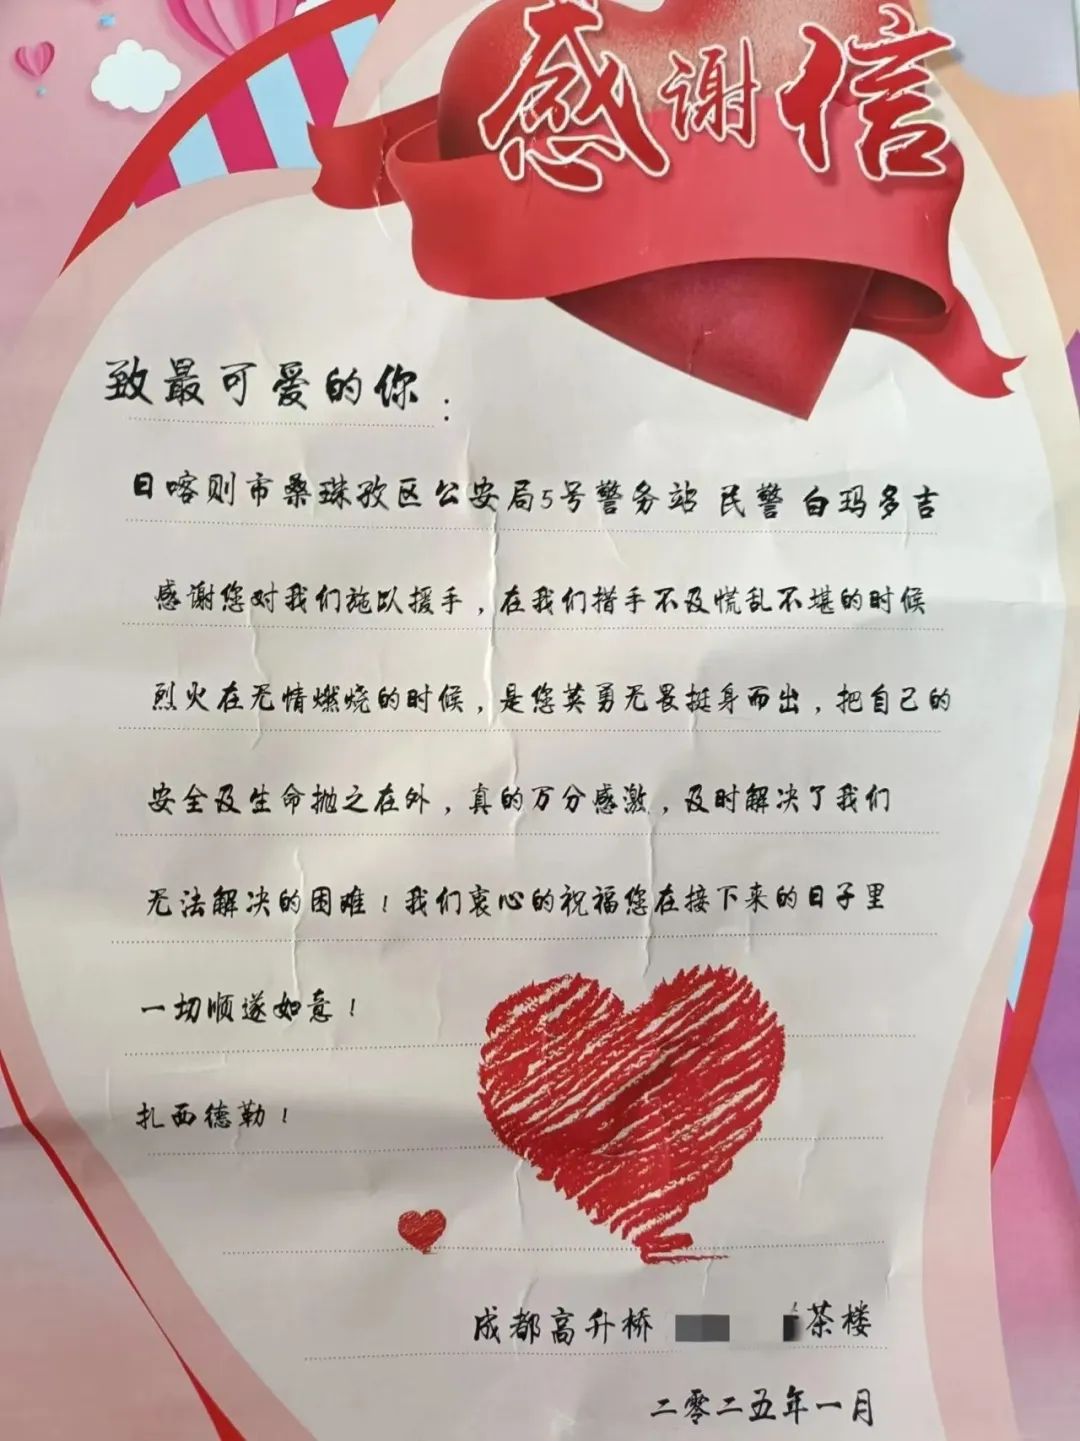 感谢信
致最可爱的你：
日喀则市桑珠孜区公安局5号警务站 民警 白玛多吉
感谢您对我们施以援手，在我们措手不及慌乱不堪的时候
烈火在无情燃烧的时候，是您英勇无畏挺身而出，把自己的
安全及生命抛之在外，真的万分感激，及时解决了我们
无法解决的困难！我们衷心的祝福您在接下来的日子里
一切顺遂如意！
扎西德勒！
成都高升桥 茶楼
二零二五年一月